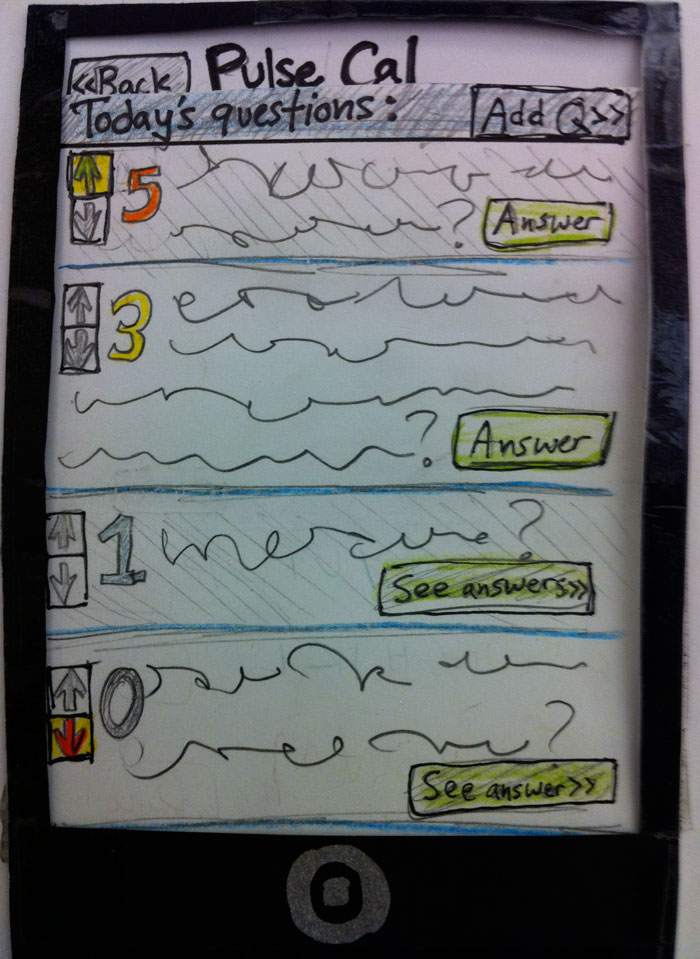 <<Back Pulse Cal
Today's questions: Add Q>>
5
? Answer
3
? Answer
1 ?
See answers>>
0
?
See answer>>